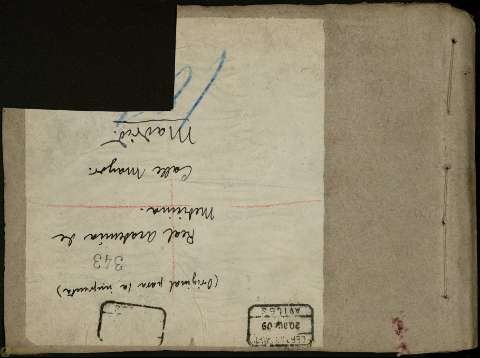 20 NOV 09
AVILES
(Original para la imprenta)
343
Real Academia de
Medicina.
Calle Mayor.
Madrid.